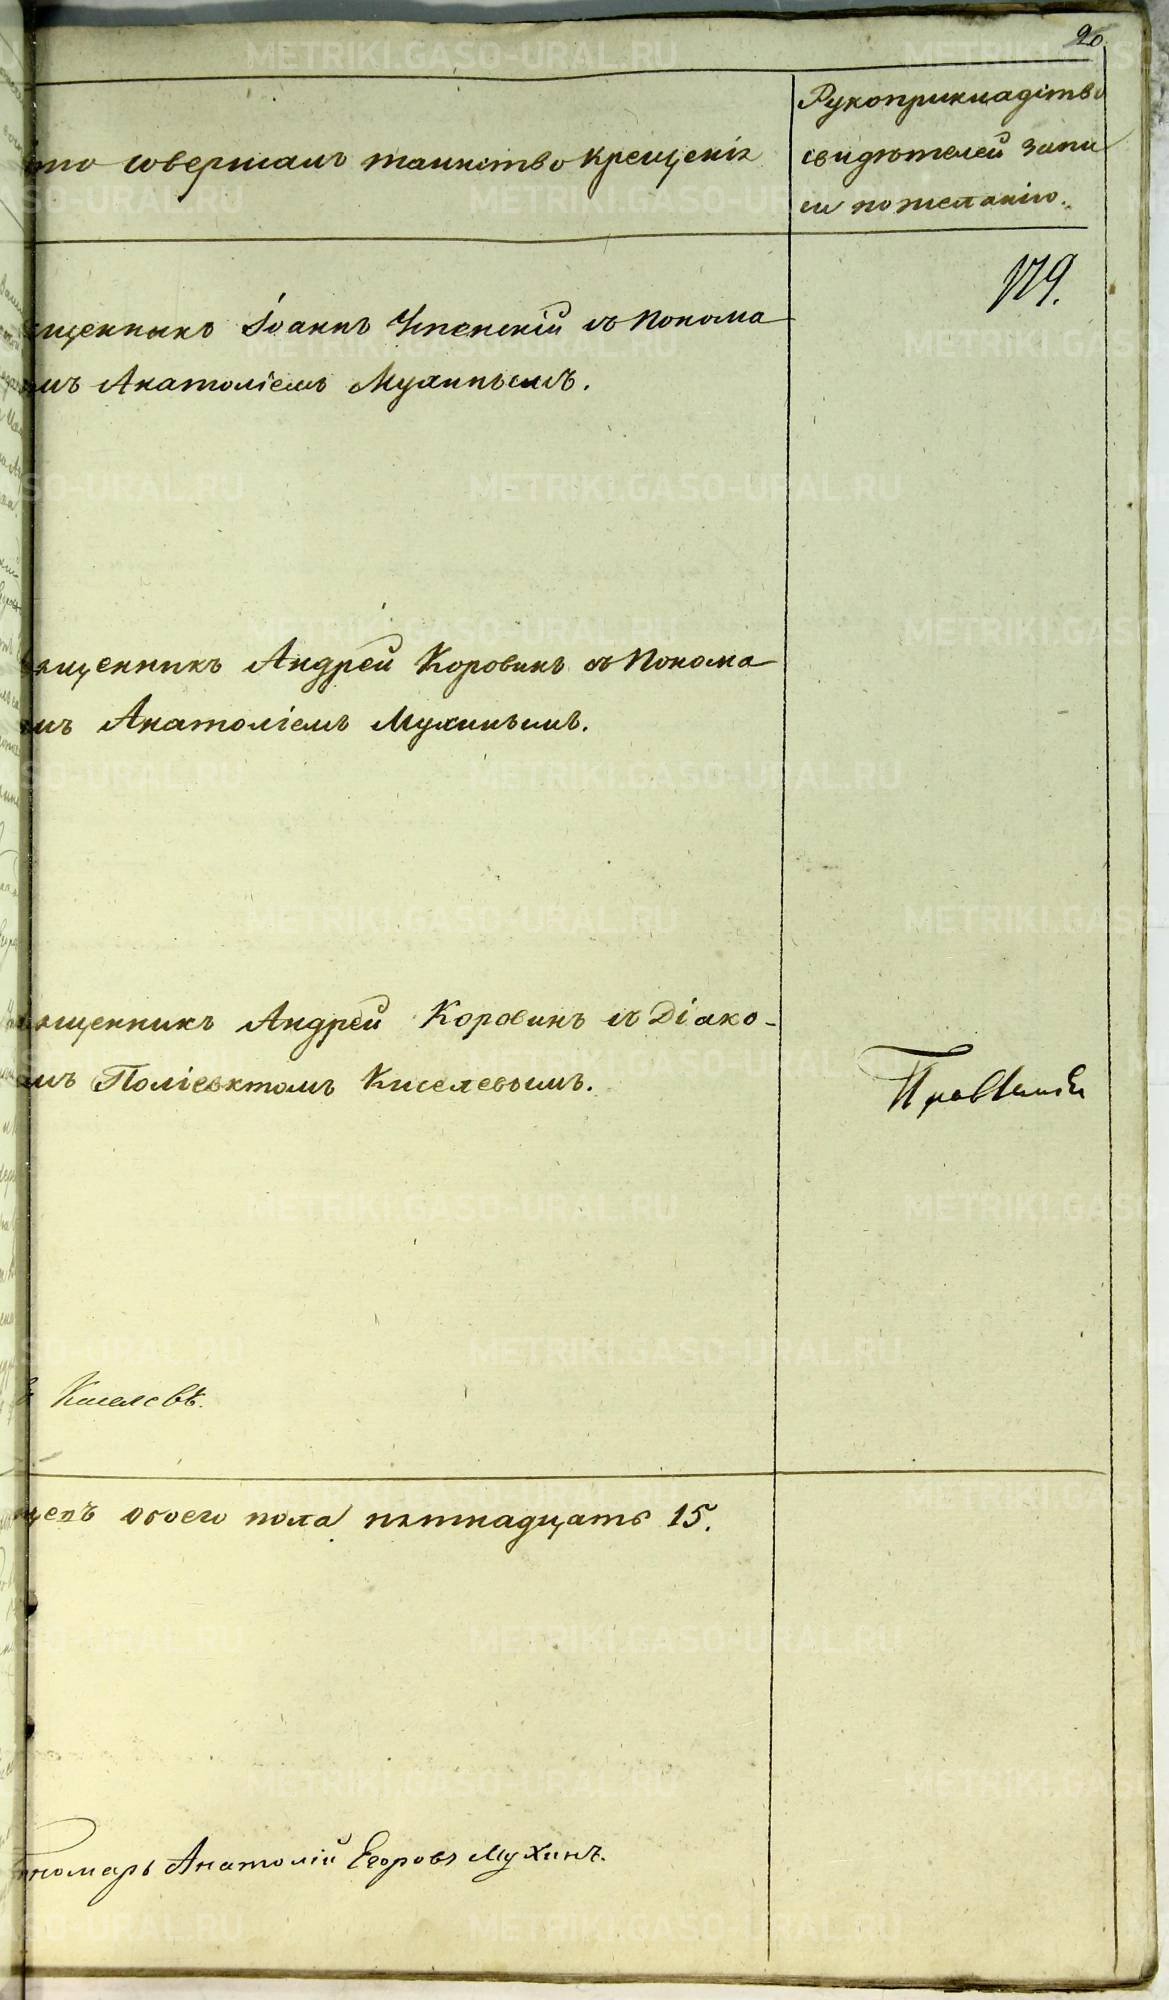 20
то совершалъ таинство крещенія
Рукоприкладство
свидѣтелей запи
си по желанію.
179.
щенникъ Іоаннъ Успенскій съ Понома
мъ Анатоліемъ Мухинымъ.
ященникъ Андрей Коровинъ съ Понома
мъ Анатоліемъ Мухинымъ.
ященникъ Андрей Коровинъ съ Діако-
мъ Поліевктомъ Киселевымъ.
Киселевъ.
щепъ обоего пола пятнадцать 15.
номарь Анатолій Егоровъ Мухинъ.
METRIKI.GASO-URAL.RU